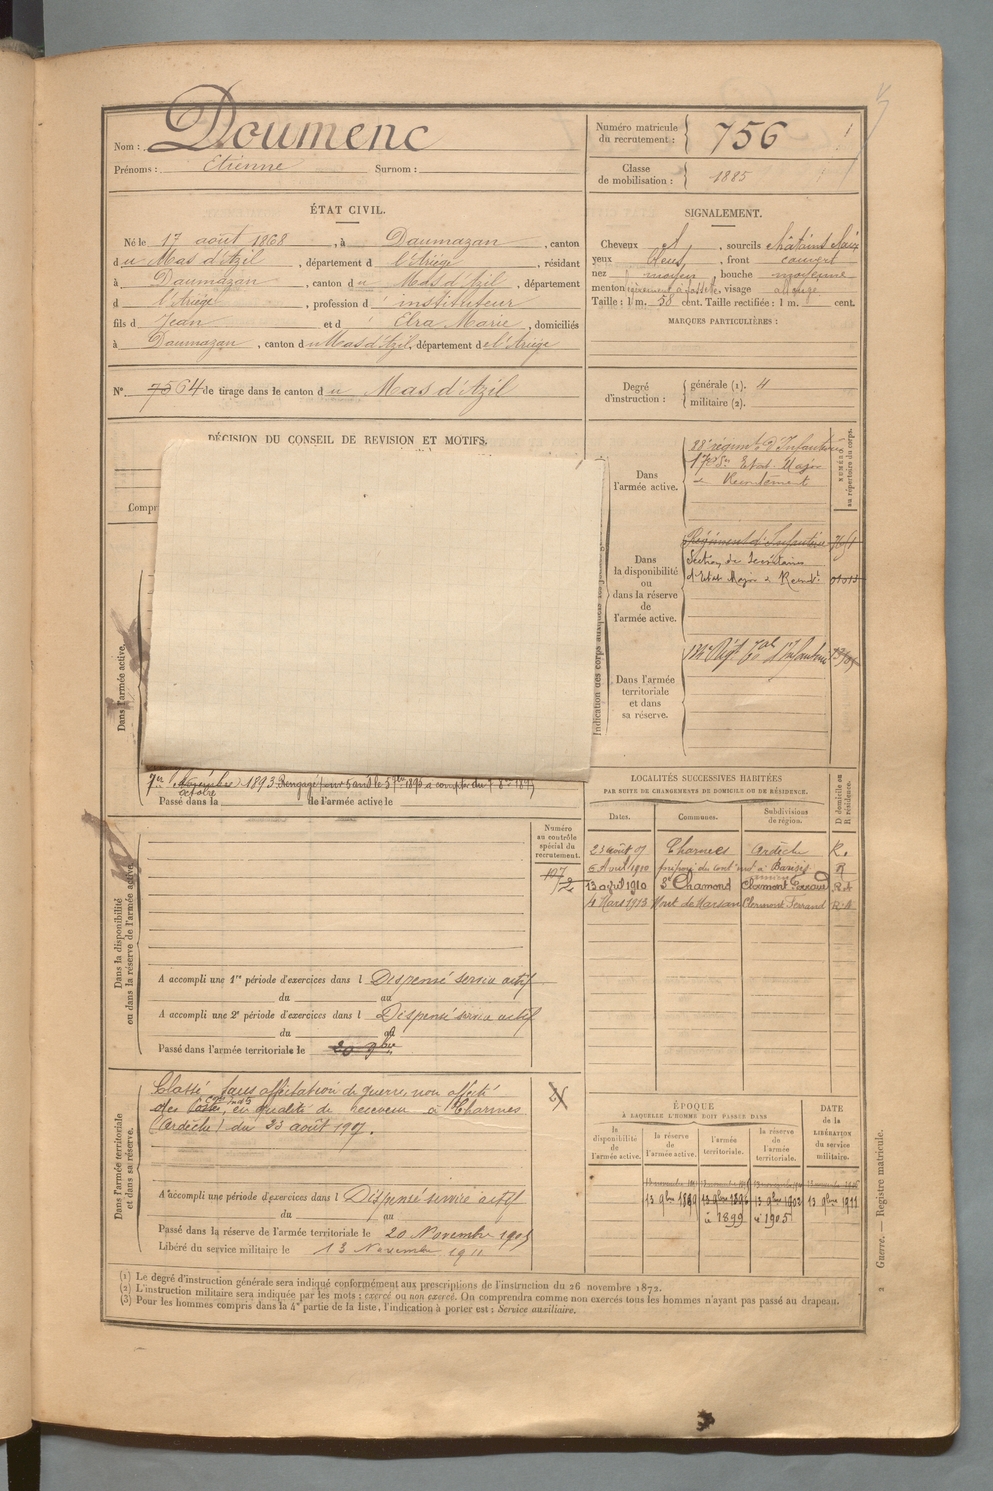 Nom : Doumenc
Prénoms : Etienne Surnom :
Numéro matricule
du recrutement : 756
Classe
de mobilisation : 1885
ÉTAT CIVIL.
Né le 17 août 1868, à Daumazan, canton
du Mas d'Azil, département d l'Ariège, résidant
à Daumazan, canton du Mas d'Azil, département
d l'Ariège, profession d' instituteur
fils d Jean et d' Elra Marie, domiciliés
à Daumazan, canton du Mas d'Azil, département de l'Ariège
N° 7564 de tirage dans le canton du Mas d'Azil
SIGNALEMENT.
Cheveux , sourcils châtains
yeux bleus, front couvert
nez moyen, bouche moyenne
menton à fossette, visage allongé
Taille : 1 m. 58 cent. Taille rectifiée : 1 m. cent.
MARQUES PARTICULIÈRES :
Degré
d'instruction :
générale (1). 4
militaire (2).
DÉCISION DU CONSEIL DE REVISION ET MOTIFS.
Compr
Dans l'armée active.
1er Novembre 1893 Rengagé pour 5 ans le
octobre
Passé dans la de l'armée active le
Indication des corps auxquels les
NUMÉRO
au répertoire du corps.
Dans
l'armée active.
88e régiment d'Infanterie
17e Son Etat-Major
Recrutement
Dans
la disponibilité
ou
dans la réserve
de
l'armée active.
Régiment d'Infanterie
Section de Secrétaires
d'Etat Major & Recrt.
Dans l'armée
territoriale
et dans
sa réserve.
d'Infanterie
LOCALITÉS SUCCESSIVES HABITÉES
PAR SUITE DE CHANGEMENTS DE DOMICILE OU DE RÉSIDENCE.
D. domicile ou
R. résidence.
Dates. Communes. Subdivisions
de région.
23 août 07 Charmes Ardèche R.
5 Avril 1910 R
13 avril 1910 St Chamond Clermont Ferrand R.A
4 Mars 1913 Mont de Marsan Clermont Ferrand R.A
Dans la disponibilité
ou dans la réserve de l'armée active.
Numéro
au contrôle
spécial du
recrutement.
A accompli une 1re période d'exercices dans l Dispensé service actif
du au
A accompli une 2e période d'exercices dans l Dispensé service actif
du au
Passé dans l'armée territoriale le 20 9bre
Dans l'armée territoriale
et dans sa réserve.
Classé sans affectation de guerre, non affecté
des Postes, en qualité de receveur à Charmes
(Ardèche) du 23 août 1907.
A accompli une période d'exercices dans l Dispensé service actif
du au
Passé dans la réserve de l'armée territoriale le 20 Novembre 1905
Libéré du service militaire le 13 Novembre 1911
ÉPOQUE
À LAQUELLE L'HOMME DOIT PASSER DANS
la
disponibilité
de
l'armée active.
la réserve
de
l'armée active.
l'armée
territoriale.
la réserve
de
l'armée
territoriale.
DATE
de la
LIBÉRATION
du service
militaire.
13 9bre 1889 13 9bre 1896 13 9bre 1902 13 9bre 1911
à 1899 à 1905
(1) Le degré d'instruction générale sera indiqué conformément aux prescriptions de l'instruction du 26 novembre 1872.
(2) L'instruction militaire sera indiquée par les mots : exercé ou non exercé. On comprendra comme non exercés tous les hommes n'ayant pas passé au drapeau.
(3) Pour les hommes compris dans la 4e partie de la liste, l'indication à porter est : Service auxiliaire.
Guerre. — Registre matricule.
2